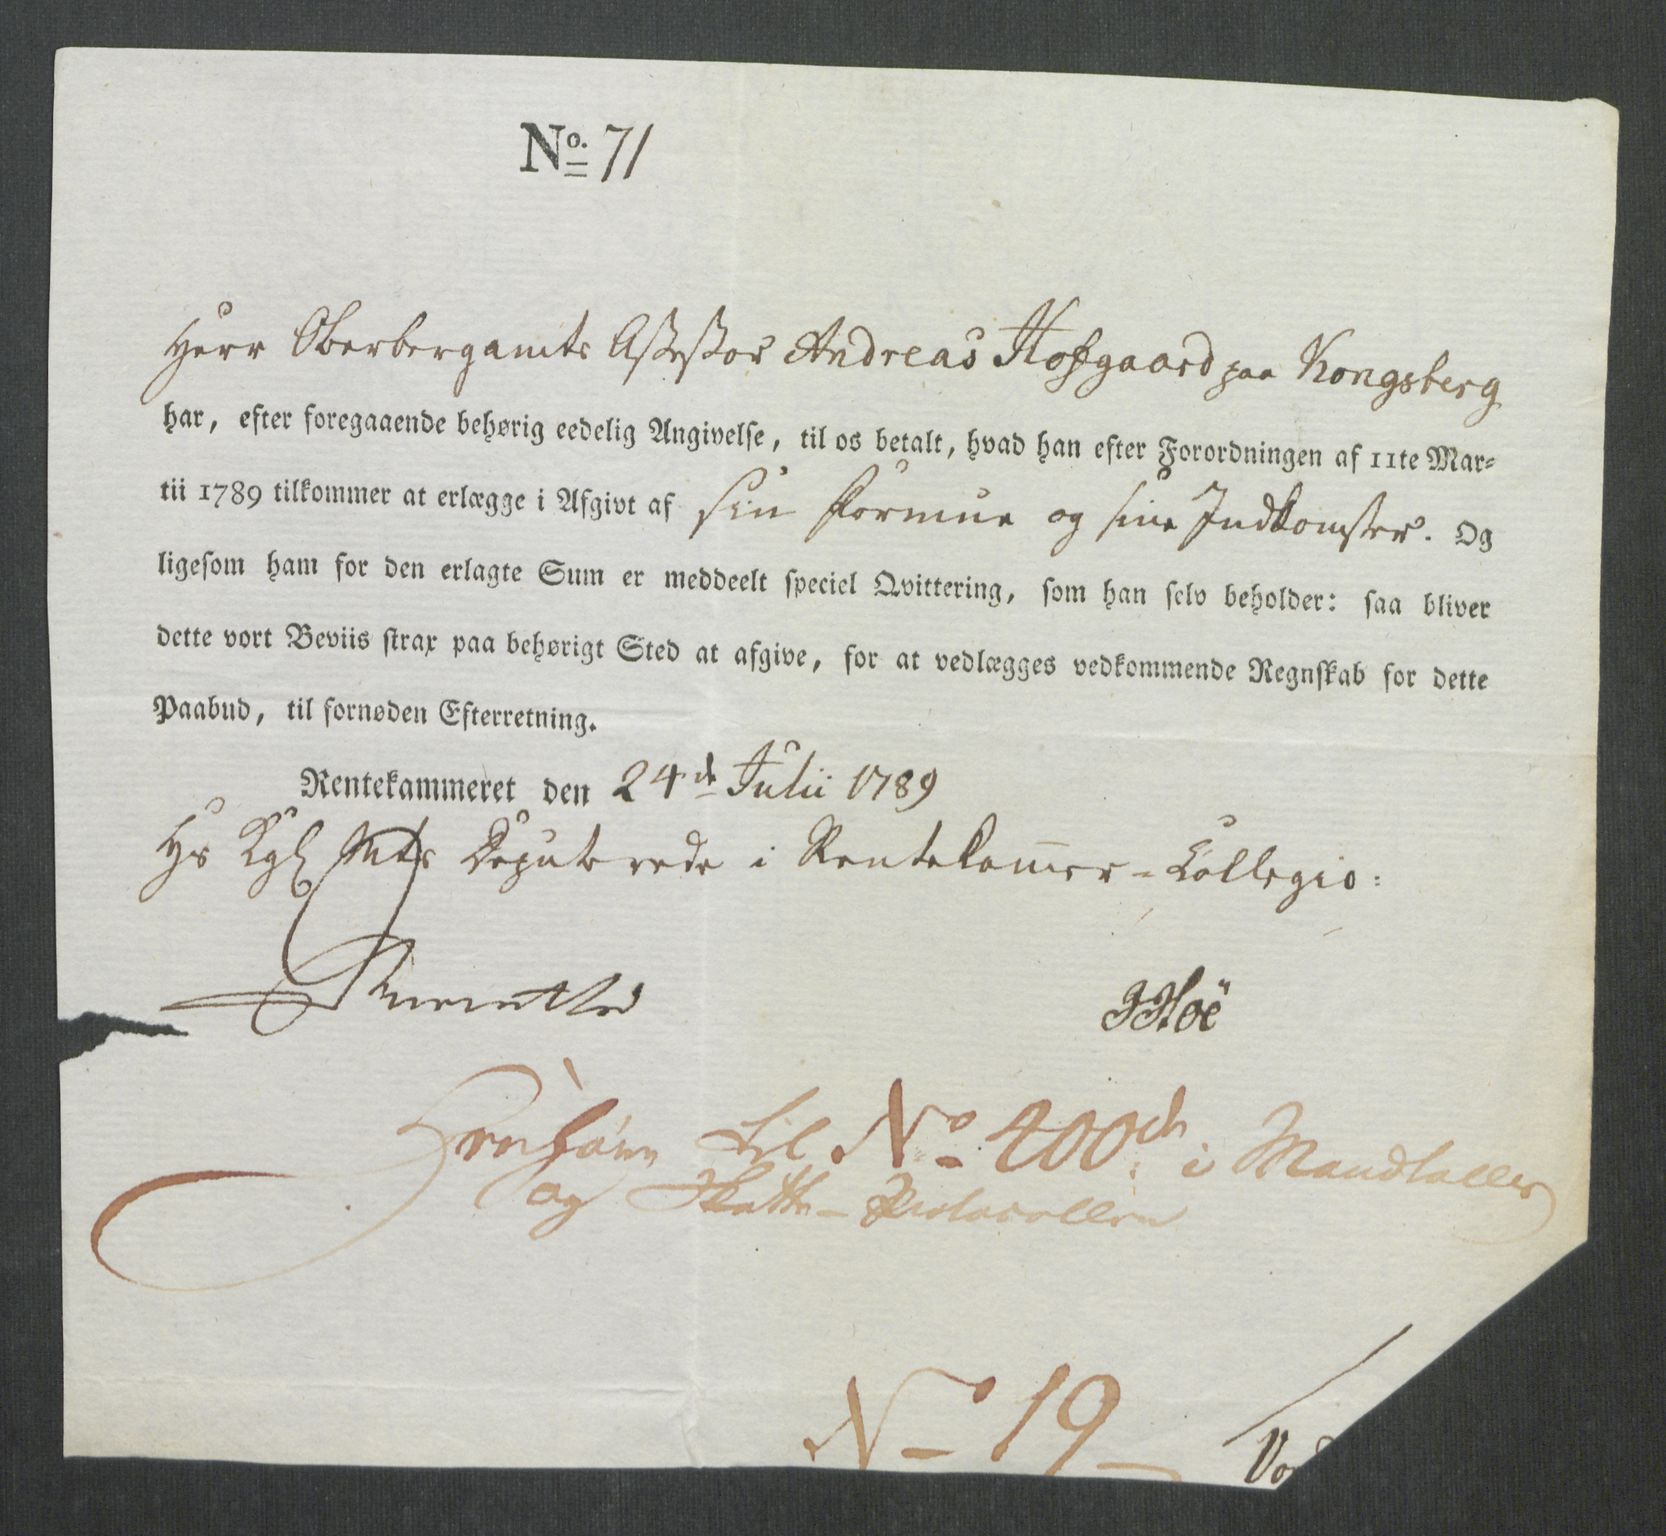 No. 71
Herr Oberbergamts Assessor Andreas Hofgaard paa Kongsberg
har, efter foregaaende behørig eedelig Angivelse, til os betalt, hvad han efter Forordningen af 11te Mar-
tii 1789 tilkommer at erlægge i Afgivt af sin Formue og sine Indkomster. Og
ligesom ham for den erlagte Sum er meddeelt speciel Qvittering, som han selv beholder: saa bliver
dette vort Beviis strax paa behørigt Sted at afgive, for at vedlægges vedkommende Regnskab for dette
Paabud, til fornøden Efterretning.
Rentekammeret den 24de Julii 1789
Hs Kgl Mts Deputerede i Rentekammer-Collegio:
JHoë
Henhører til No 400de i Mandtallet
og Skatte-Protocollen
No 19